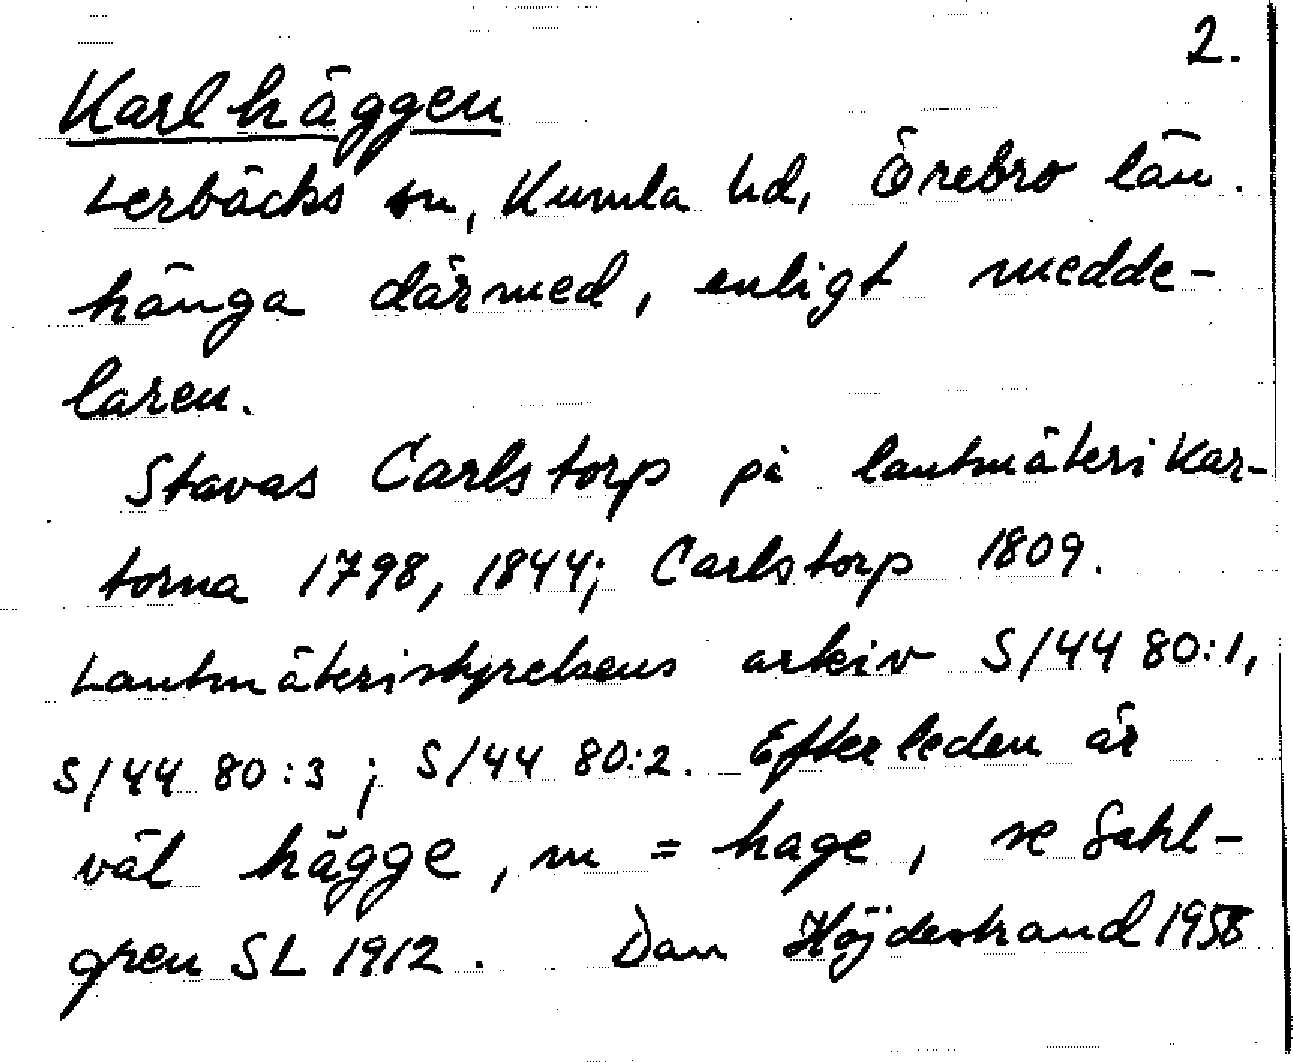 2.
Karlhäggen
Lerbäcks sn, Kumla hd, Örebro län.
hänga därmed, enligt medde-
laren.
Stavas Carlstorp på lantmäterikar-
torna 1798, 1844; Carlstorp 1809.
Lantmäteristyrelsens arkiv S/44 80:1,
S/44 80:3 ; S/44 80:2. Efterleden är
väl hägge, m = hage, se Sahl-
gren SL 1912. Dan Höjdestrand 1958